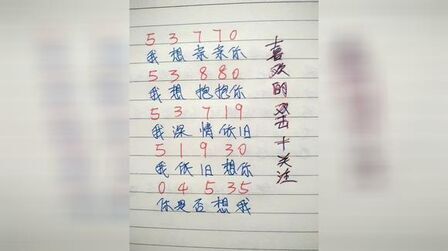 5 3 7 7 0
我想亲亲你
5 3 8 8 0
我想抱抱你
5 3 7 1 9
我深情依旧
5 1 9 3 0
我依旧想你
0 4 5 3 5
你是否想我
喜欢的双击十关注